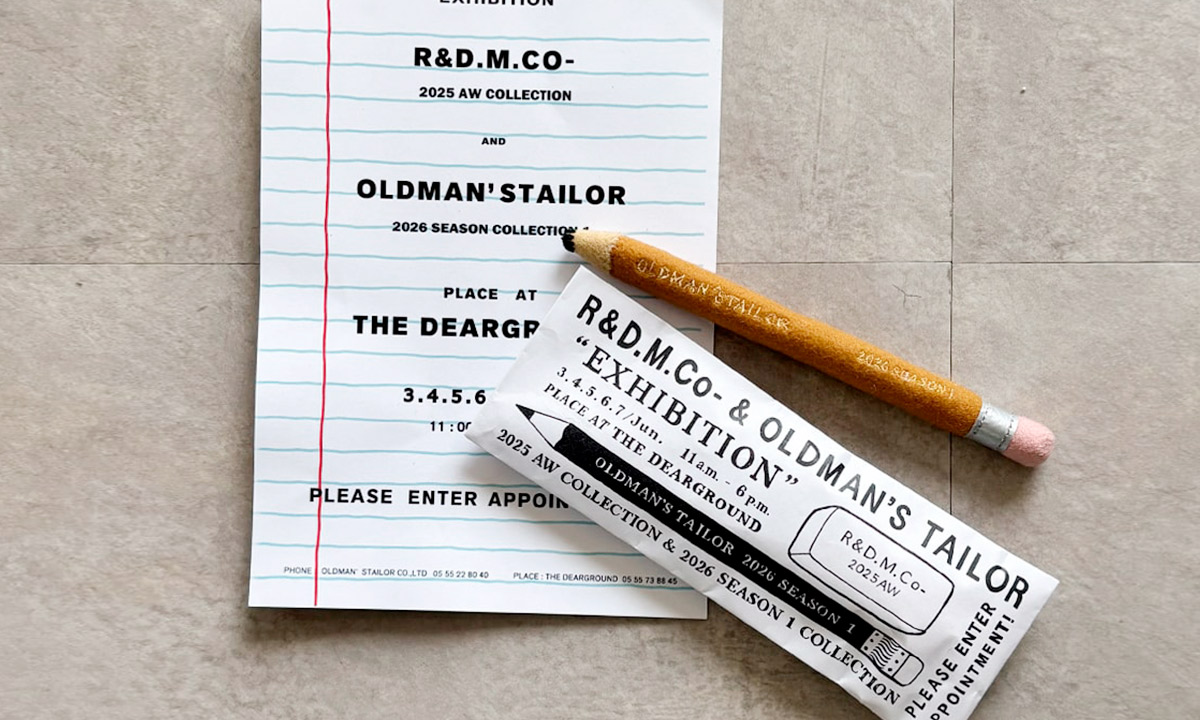 EXHIBITION
R&D.M.CO-
2025 AW COLLECTION
AND
OLDMAN'STAILOR
2026 SEASON COLLECTION
PLACE AT
THE DEARGR
3.4.5.6
11:00
PLEASE ENTER APPOIN
PHONE : OLDMAN' STAILOR CO.,LTD 05 55 22 80 40 PLACE : THE DEARGROUND 05 55 73 88 45
OLDMAN'STAILOR 2026 SEASON1
R&D.M.Co- & OLDMAN'S TAILOR
"EXHIBITION"
3.4.5.6.7/Jun. 11a.m. - 6p.m.
PLACE AT THE DEARGROUND
OLDMAN'S TAILOR 2026 SEASON 1
2025 AW COLLECTION & 2026 SEASON 1 COLLECTION
R&D.M.Co-
2025AW
PLEASE ENTER
PPOINTMENT!